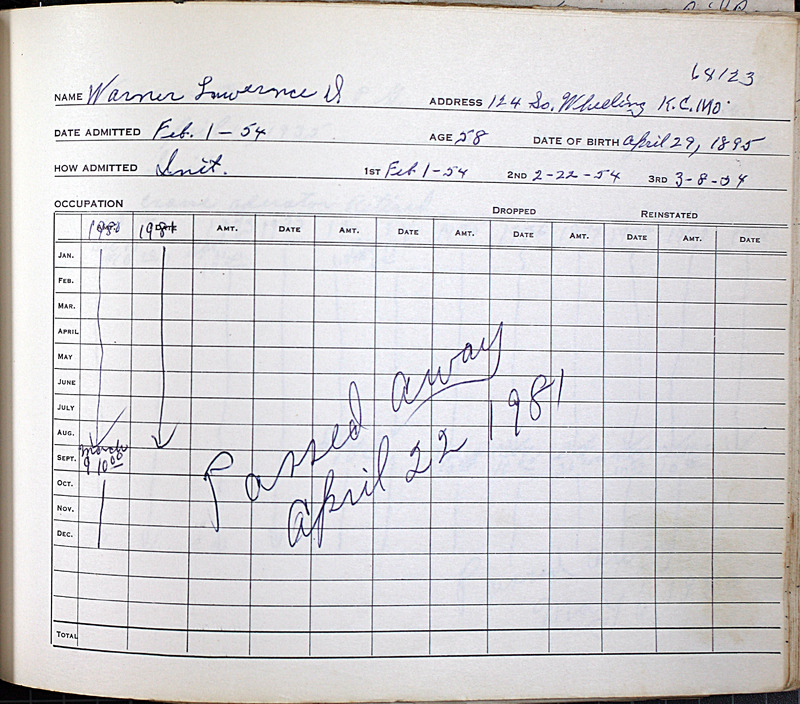 68123
NAME Warner Lawerence D ADDRESS 124 So. Wheeling K.C. Mo.
DATE ADMITTED Feb. 1 - 54 AGE 58 DATE OF BIRTH April 29, 1895
HOW ADMITTED Init. 1ST Feb 1-54 2ND 2-22-54 3RD 3-8-54
OCCUPATION
DROPPED REINSTATED
1980 1981 AMT. DATE AMT. DATE AMT. DATE AMT. DATE AMT. DATE
JAN.
FEB.
MAR.
APRIL
MAY
JUNE
JULY
AUG.
March
SEPT. $10.00
OCT.
NOV.
DEC.
Passed away
April 22 1981
TOTAL